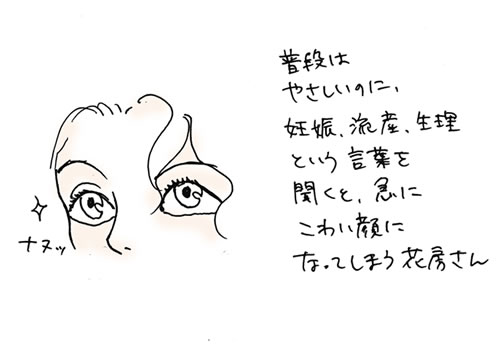 普段は
やさしいのに、
妊娠、流産、生理
という言葉を
聞くと、急に
こわい顔に
なってしまう花房さん
ナヌッ